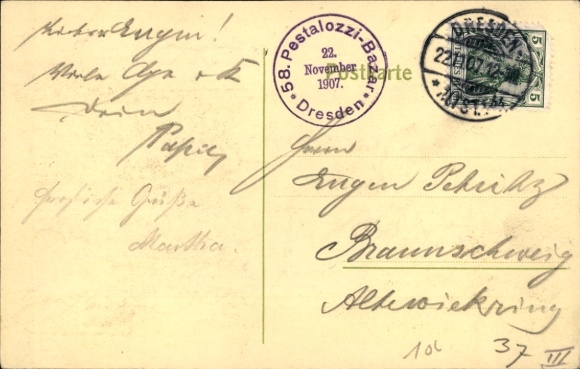 Lieber Eugen!
Viele
Dein
Papa
herzliche Grüße
Martha.
58. Pestalozzi-Bazar
22.
November
1907.
Dresden
Postkarte
DRESDEN
5
5
Herrn
Eugen Petritz
Braunschweig
Altewiekring
37 III
106